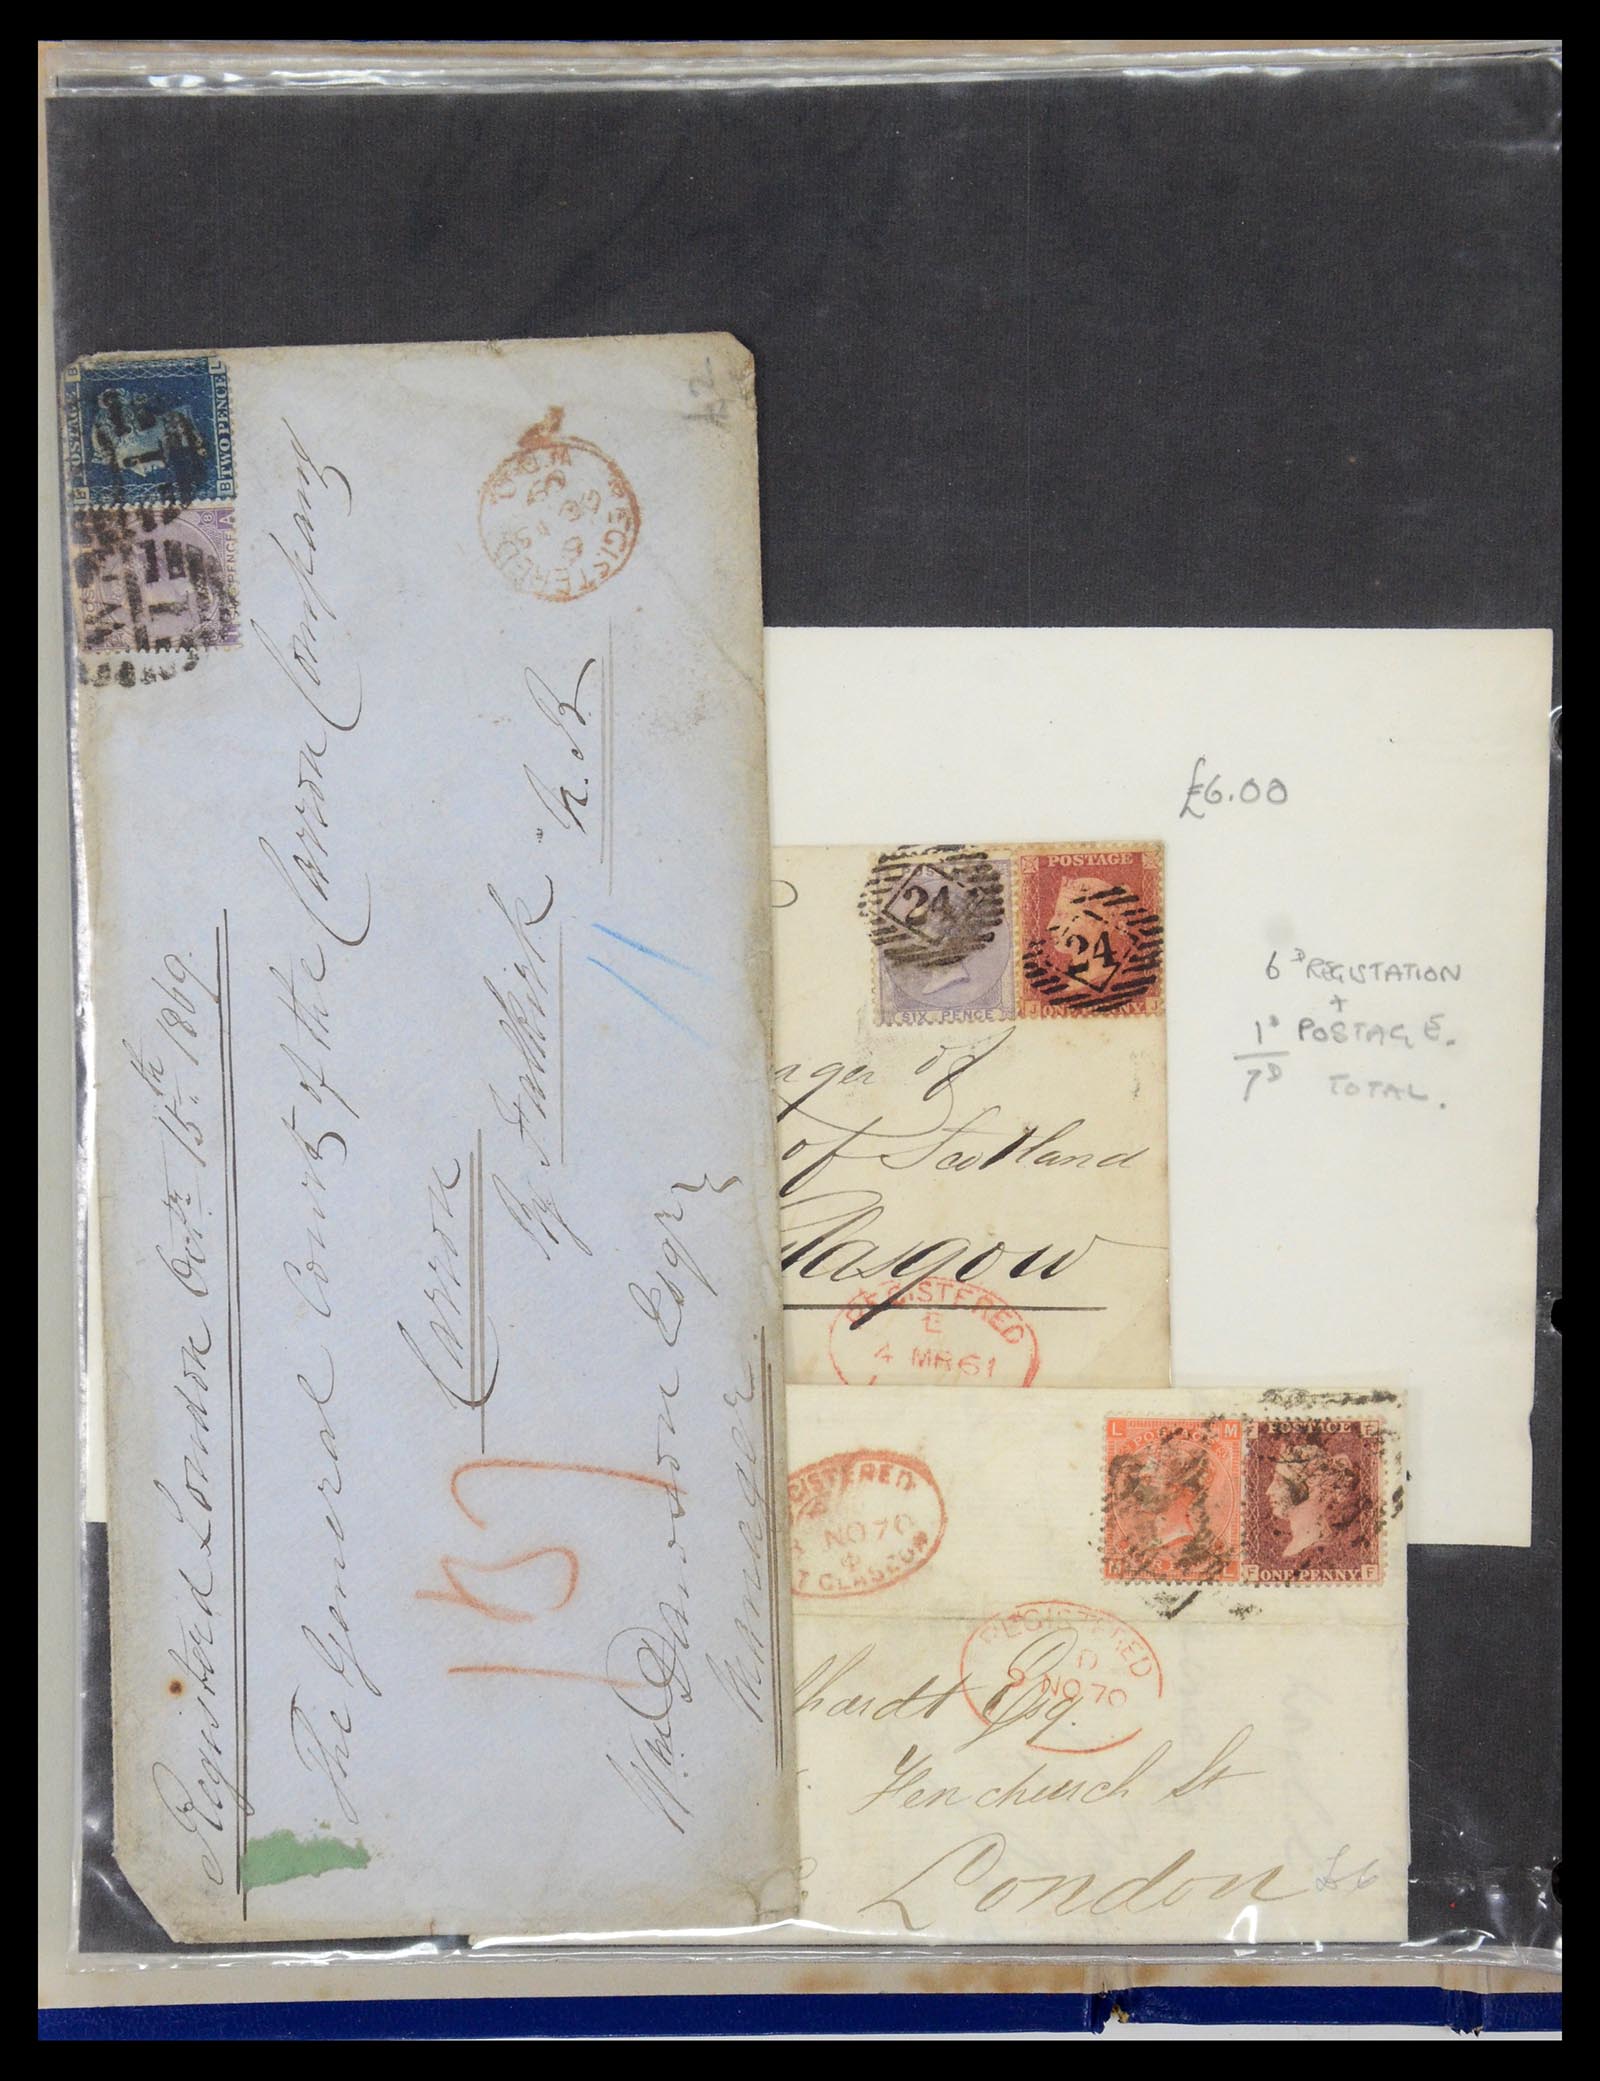 Registered London Octr. 15th 1869.
The General Court of the Carron Company
Carron
By Falkirk
N. B.
Wm. Dawson Esqr
Manager
B
POSTAGE
E
L
TWO PENCE
B
A
REGISTERED
£6.00
6D REGISTATION
+
1D POSTAGE.
7D TOTAL.
24
SIX PENCE
POSTAGE
24
J ONE PENNY J
ager of
of Scotland
Glasgow
REGISTERED
E
4 MR 61
GISTERED
NO 70
GLASGOW
L POSTAGE M
M L
F POSTAGE F
F ONE PENNY F
REGISTERED
D
NO 70
hardt Esq.
Fenchurch St
London
£6